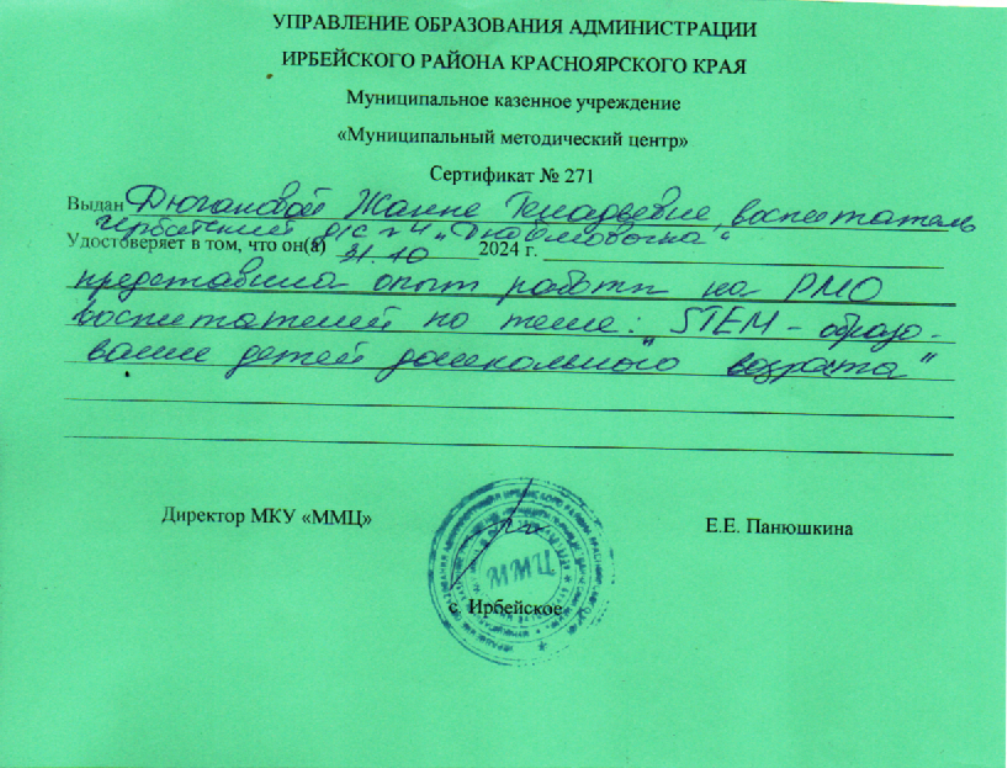 УПРАВЛЕНИЕ ОБРАЗОВАНИЯ АДМИНИСТРАЦИИ
ИРБЕЙСКОГО РАЙОНА КРАСНОЯРСКОГО КРАЯ
Муниципальное казенное учреждение
«Муниципальный методический центр»
Сертификат № 271
Выдан Дюгановой Жанне Генадьевне, воспитатель
Ирбейский д/с №4 „Дюймовочка“
Удостоверяет в том, что он(а) 31.10 2024 г.
представила опыт работы на РМО
воспитателей по теме: STEM - образо-
вание детей дошкольного возраста"
Директор МКУ «ММЦ»
Е.Е. Панюшкина
ММЦ
с. Ирбейское